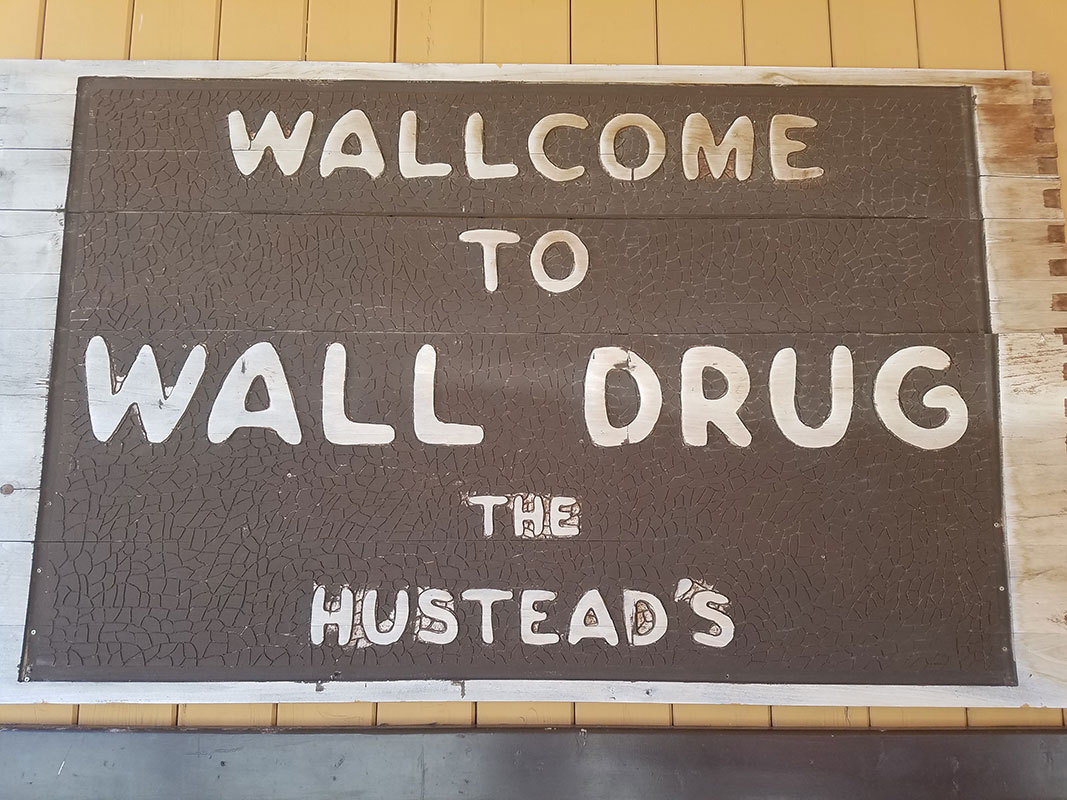 WALLCOME
TO
WALL DRUG
THE
HUSTEAD'S